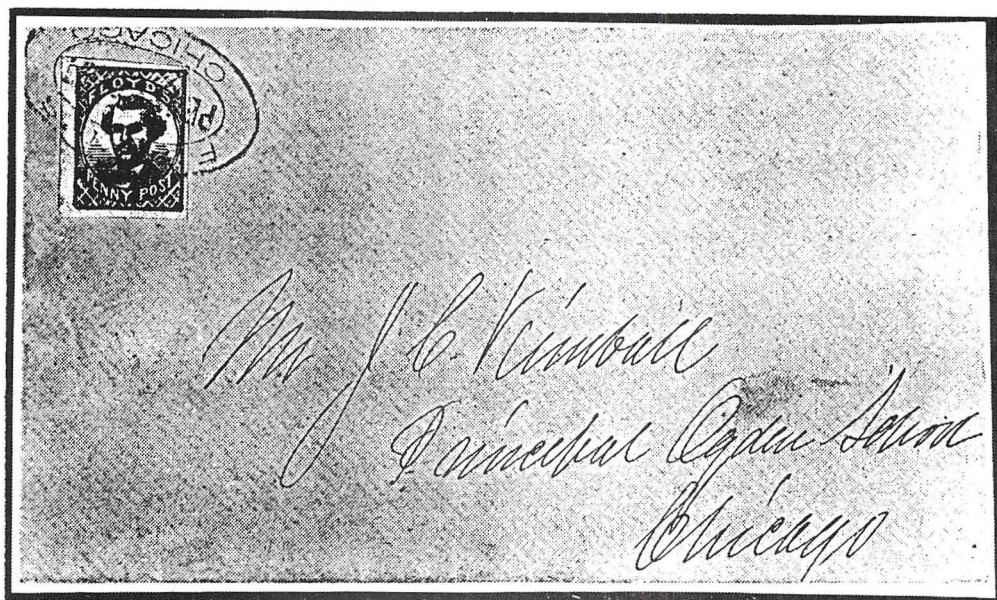 CHICAGO
FLOYD'S
PENNY POST
Mr J C. Kimball
Principal Ogden School
Chicago